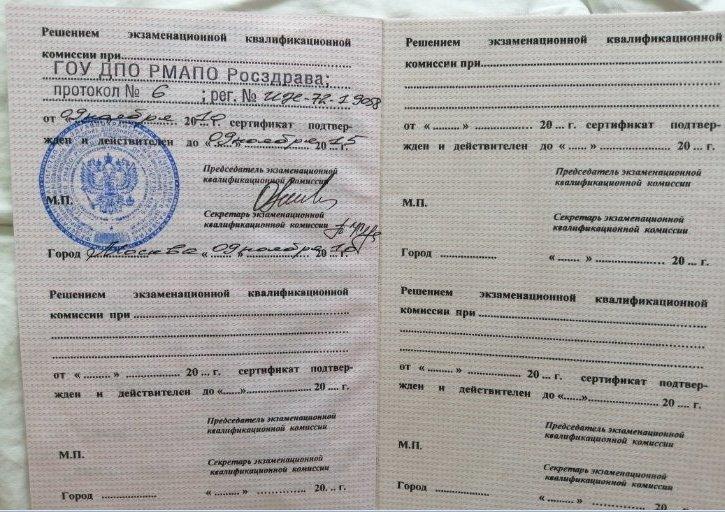 Решением экзаменационной квалификационной
комиссии при
ГОУ ДПО РМАПО Росздрава;
протокол № 6 ; рег. № ИДС-72-1 9058
от « 09 ноября 20 10 г. сертификат подтвер-
жден и действителен до « 09 ноября 20 15 г.
Председатель экзаменационной
квалификационной комиссии
М.П.
Секретарь экзаменационной
квалификационной комиссии
Город Москва « 09 ноября 20 10 г.
Решением экзаменационной квалификационной
комиссии при
от « ......... » ................ 20 ... г. сертификат подтвер-
жден и действителен до «......»..................... 20 .... г.
Председатель экзаменационной
квалификационной комиссии
М.П.
Секретарь экзаменационной
квалификационной комиссии
Город ................ « ........ » .............. 20. .. г.
Решением экзаменационной квалификационной
комиссии при
от « ........ » ................. 20 ... г. сертификат подтвер-
жден и действителен до « ...... » .................... 20 .... г.
Председатель экзаменационной
квалификационной комиссии
М.П.
Секретарь экзаменационной
квалификационной комиссии
Город ................ « ........ » .............. 20 ... г.
Решением экзаменационной квалификационной
комиссии при
от « ........ » ................ 20 ... г. сертификат подтвер-
жден и действителен до «......»..................... 20 .... г.
Председатель экзаменационной
квалификационной комиссии
М.П.
Секретарь экзаменационной
квалификационной комиссии
Город ................ « ........ » .............. 20. .. г.